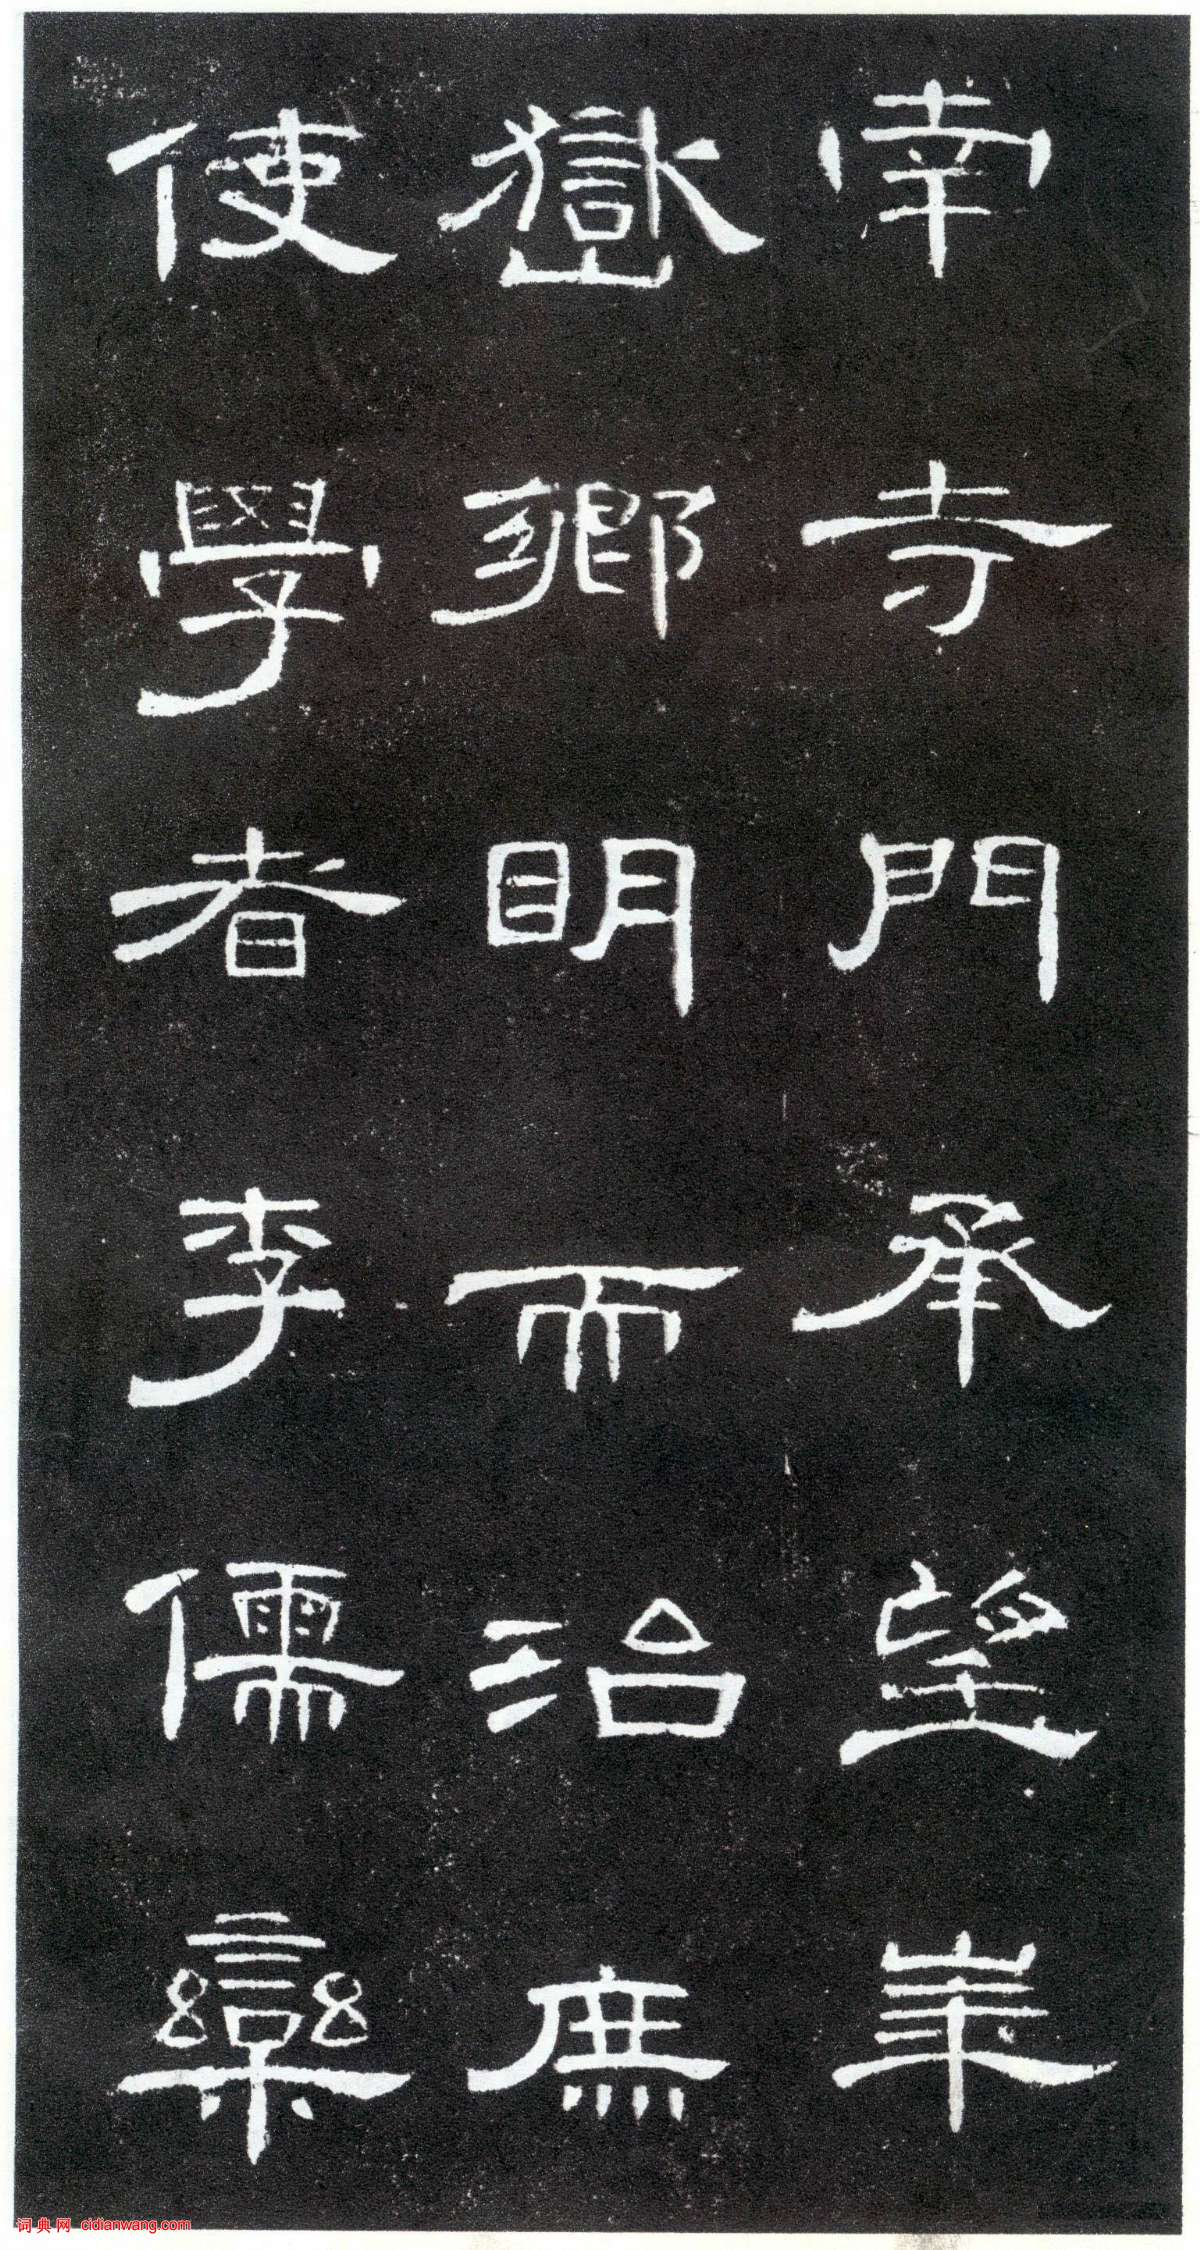 南寺門承望華
嶽鄉明而治庶
使學者李儒欒
词典网 cidianwang.com